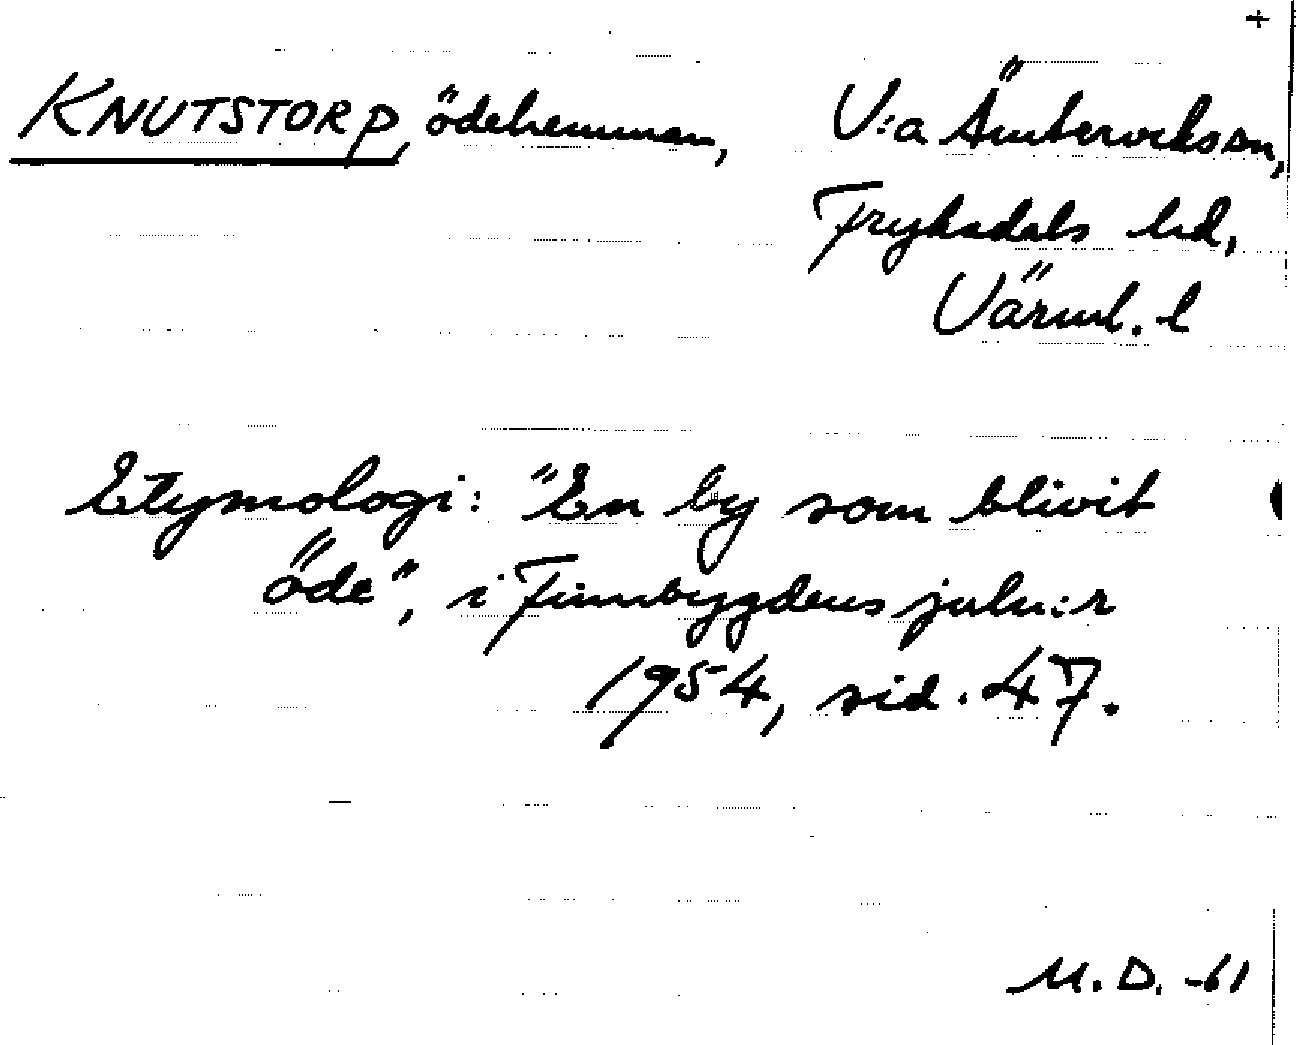 +
KNUTSTORP, ödehemman, V:a Ämterviks sn,
Fryksdals hd,
Värml. l
Etymologi: "En by som blivit
öde", i Finnbygdens juln:r
1954, sid. 47.
M.D. -61